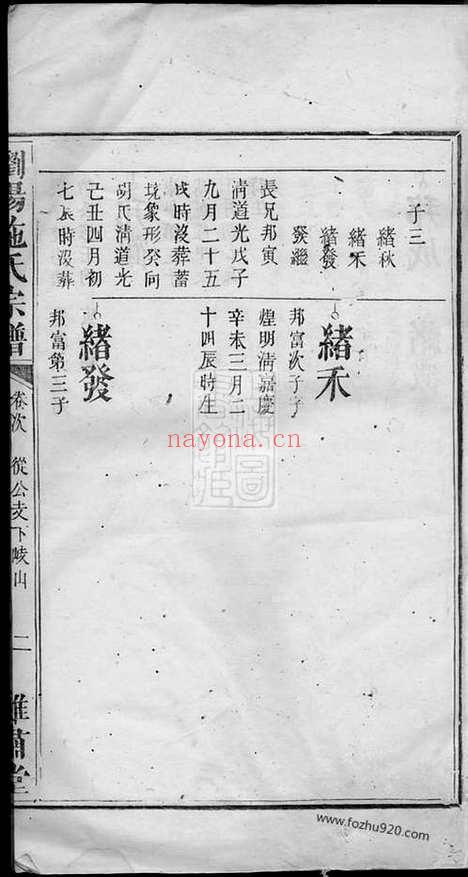 子三
緒秋
緒禾
緒發
發繼
長兄邦寅
淸道光戊子
九月二十五
戌時沒葬蓄
境象形癸向
胡氏淸道光
己丑四月初
七辰時沒葬
緒禾
邦富次子子
煌明淸嘉慶
辛未三月二
十四辰時生
緒發
邦富第三子
瀏陽施氏宗譜
卷次
從公支下崚山
二
雍肅堂
nayona.cn
www.fozhu920.com